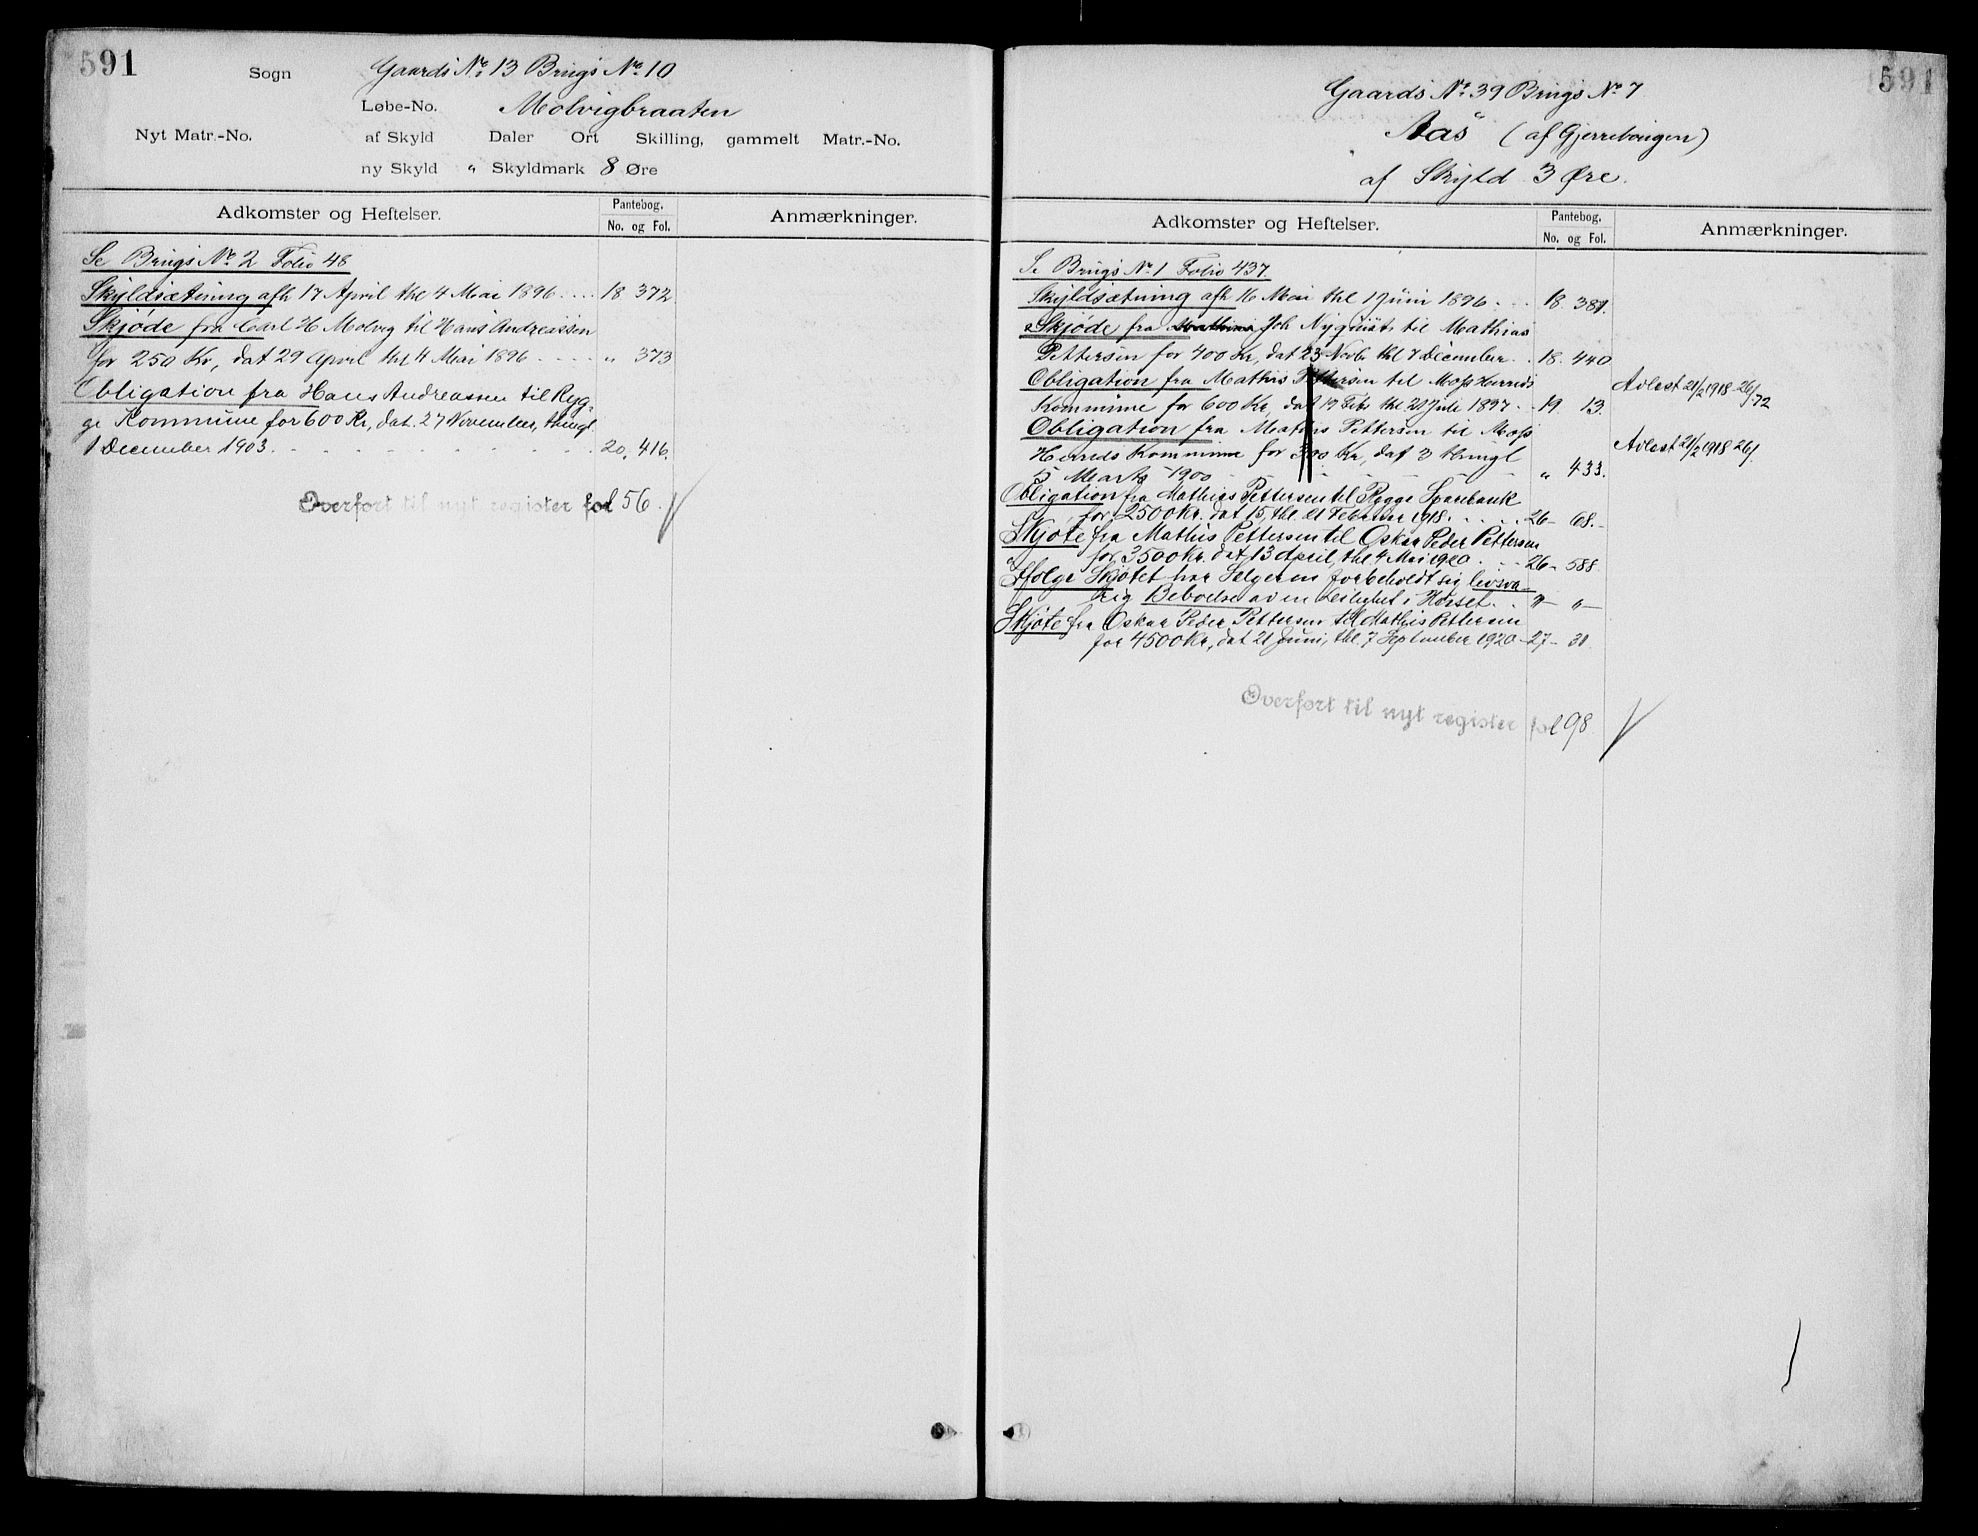 591
Sogn Gaards No. 13 Brugs No. 10
Løbe-No. Molvigbraaten
Nyt Matr.-No. af Skyld Daler Ort Skilling, gammelt Matr.-No.
ny Skyld " Skyldmark 8 Øre
Adkomster og Heftelser. Pantebog. No. og Fol. Anmærkninger.
Se Brugs No. 2 Folio 48
Skyldsætning afh 17 April thl 4 Mai 1896 18 372
Skjøde fra Carl H Molvig til Hans Andreassen
for 250 Kr, dat 29 April thl 4 Mai 1896 " 373
Obligation fra Hans Andreassen til Ryg-
ge Kommune for 600 Kr, dat. 27 November, thingl
1 December 1903. 20. 416.
Overført til nyt register fol 56.
591
Gaards No. 39 Brugs No. 7
Aas (af Gjerrebøigen)
af Skyld 3 Øre.
Adkomster og Heftelser. Pantebog. No. og Fol. Anmærkninger.
Se Brugs No. 1 Folio 437.
Skyldsætning afh 16 Mai thl 1 Juni 1896. 18. 381.
Skjøde fra Mathias Joh Nyquist til Mathias
Pettersen for 400 Kr, dat 23 Novbr thl 7 December. 18. 440
Obligation fra Mathis Pettersen til Moss Herreds Avlest 21/2 1918 26/72
Kommune for 600 Kr, dat 19 Febr thl 21 Juli 1897. 19. 13.
Obligation fra Mathis Pettersen til Moss Avlest 21/2 1918 26/
Herreds Kommune for 300 Kr, dat 3 thingl
5 Marts 1900 " 433.
Obligation fra Mathias Pettersen til Rygge Sparebank
for 2500 Kr. dat 15, thl. 21 Februar 1918. 26- 68.-
Skjøte fra Mathis Pettersen til Oskar Peder Pettersen
for 3500 Kr. dat 13 April, thl 4 Mai 1920. 26- 588.
Ifølge Skjøtet har Selgeren forbeholdt sig livsva-
rig Beboelse av en Leilighet i Huset. "- "-
Skjøte fra Oskar Peder Pettersen til Mathis Pettersen
for 4500 Kr., dat 21 Juni, thl. 7 September 1920 -27- 31.
Overført til nyt register fol 98.